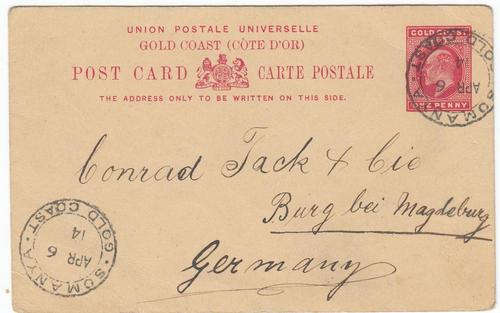 UNION POSTALE UNIVERSELLE
GOLD COAST (CÔTE D'OR)
POST CARD CARTE POSTALE
THE ADDRESS ONLY TO BE WRITTEN ON THIS SIDE.
GOLD COAST
ONE PENNY
SOMANYA
GOLD COAST
APR 6
14
Conrad Tack & Cie
Burg bei Magdeburg
Germany
SOMANYA
GOLD COAST
APR 6
14